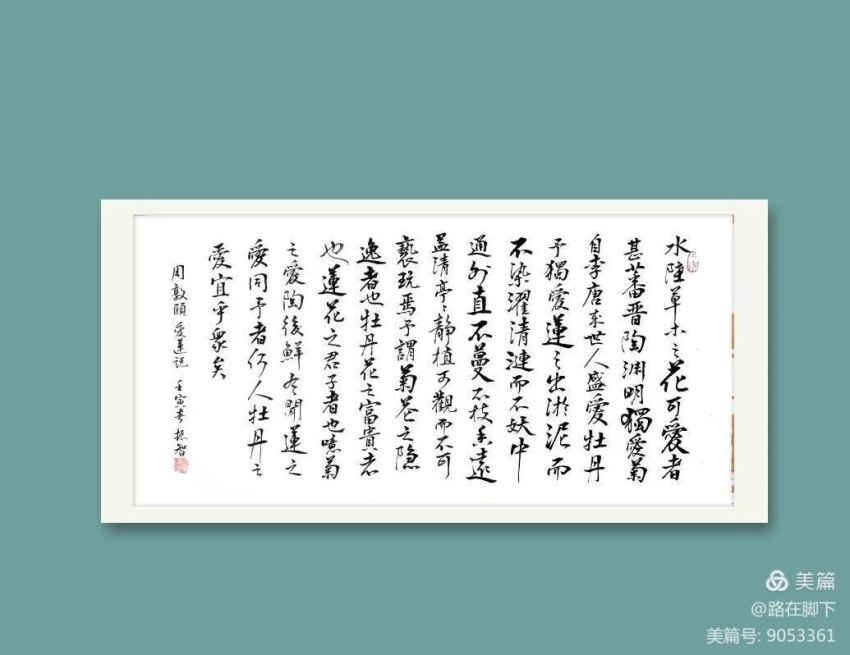 水陸草木之花可愛者
甚蕃晋陶渊明獨愛菊
自李唐來世人盛愛牡丹
予獨愛蓮之出淤泥而
不染濯清漣而不妖中
通外直不蔓不枝香遠
益清亭〻静植可觀而不可
褻玩焉予謂菊花之隐
逸者也牡丹花之富貴者
也蓮花之君子者也噫菊
之愛陶後鮮有聞蓮之
愛同予者何人牡丹之
愛宜乎衆矣
周敦頤爱蓮说 壬寅春振智
美篇
@路在脚下
美篇号: 9053361